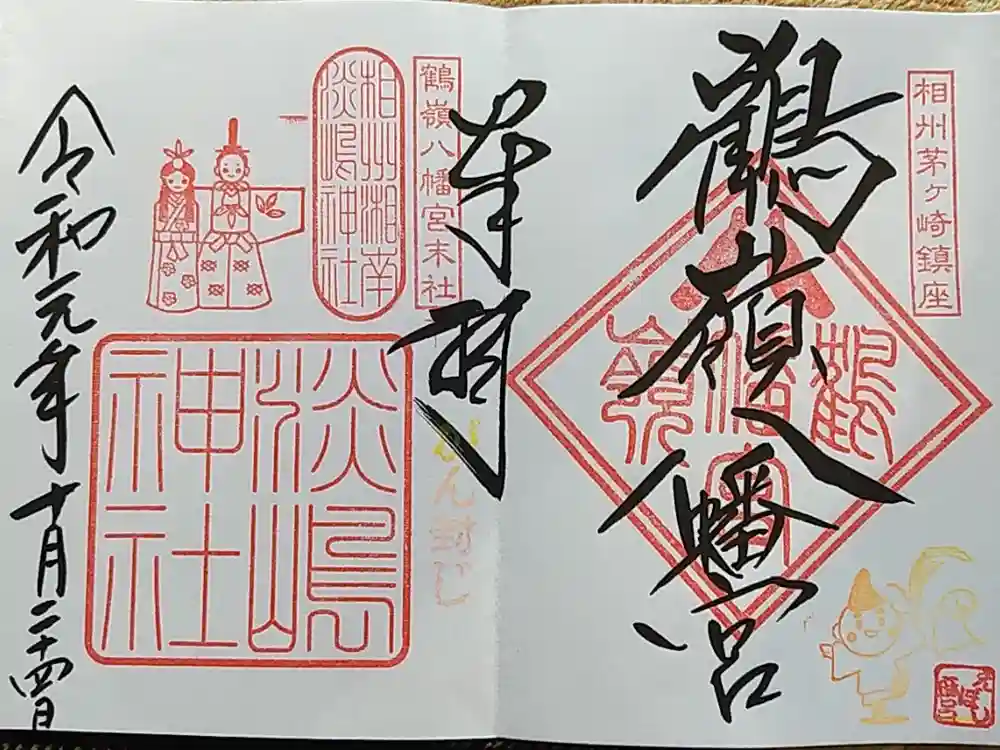 相州茅ヶ崎鎮座
鶴嶺八幡宮
鶴
嶺
奉拝
鶴嶺八幡宮末社
相州湘南
淡嶋神社
淡嶋
神社
ん封じ
令和元年十月二十四日